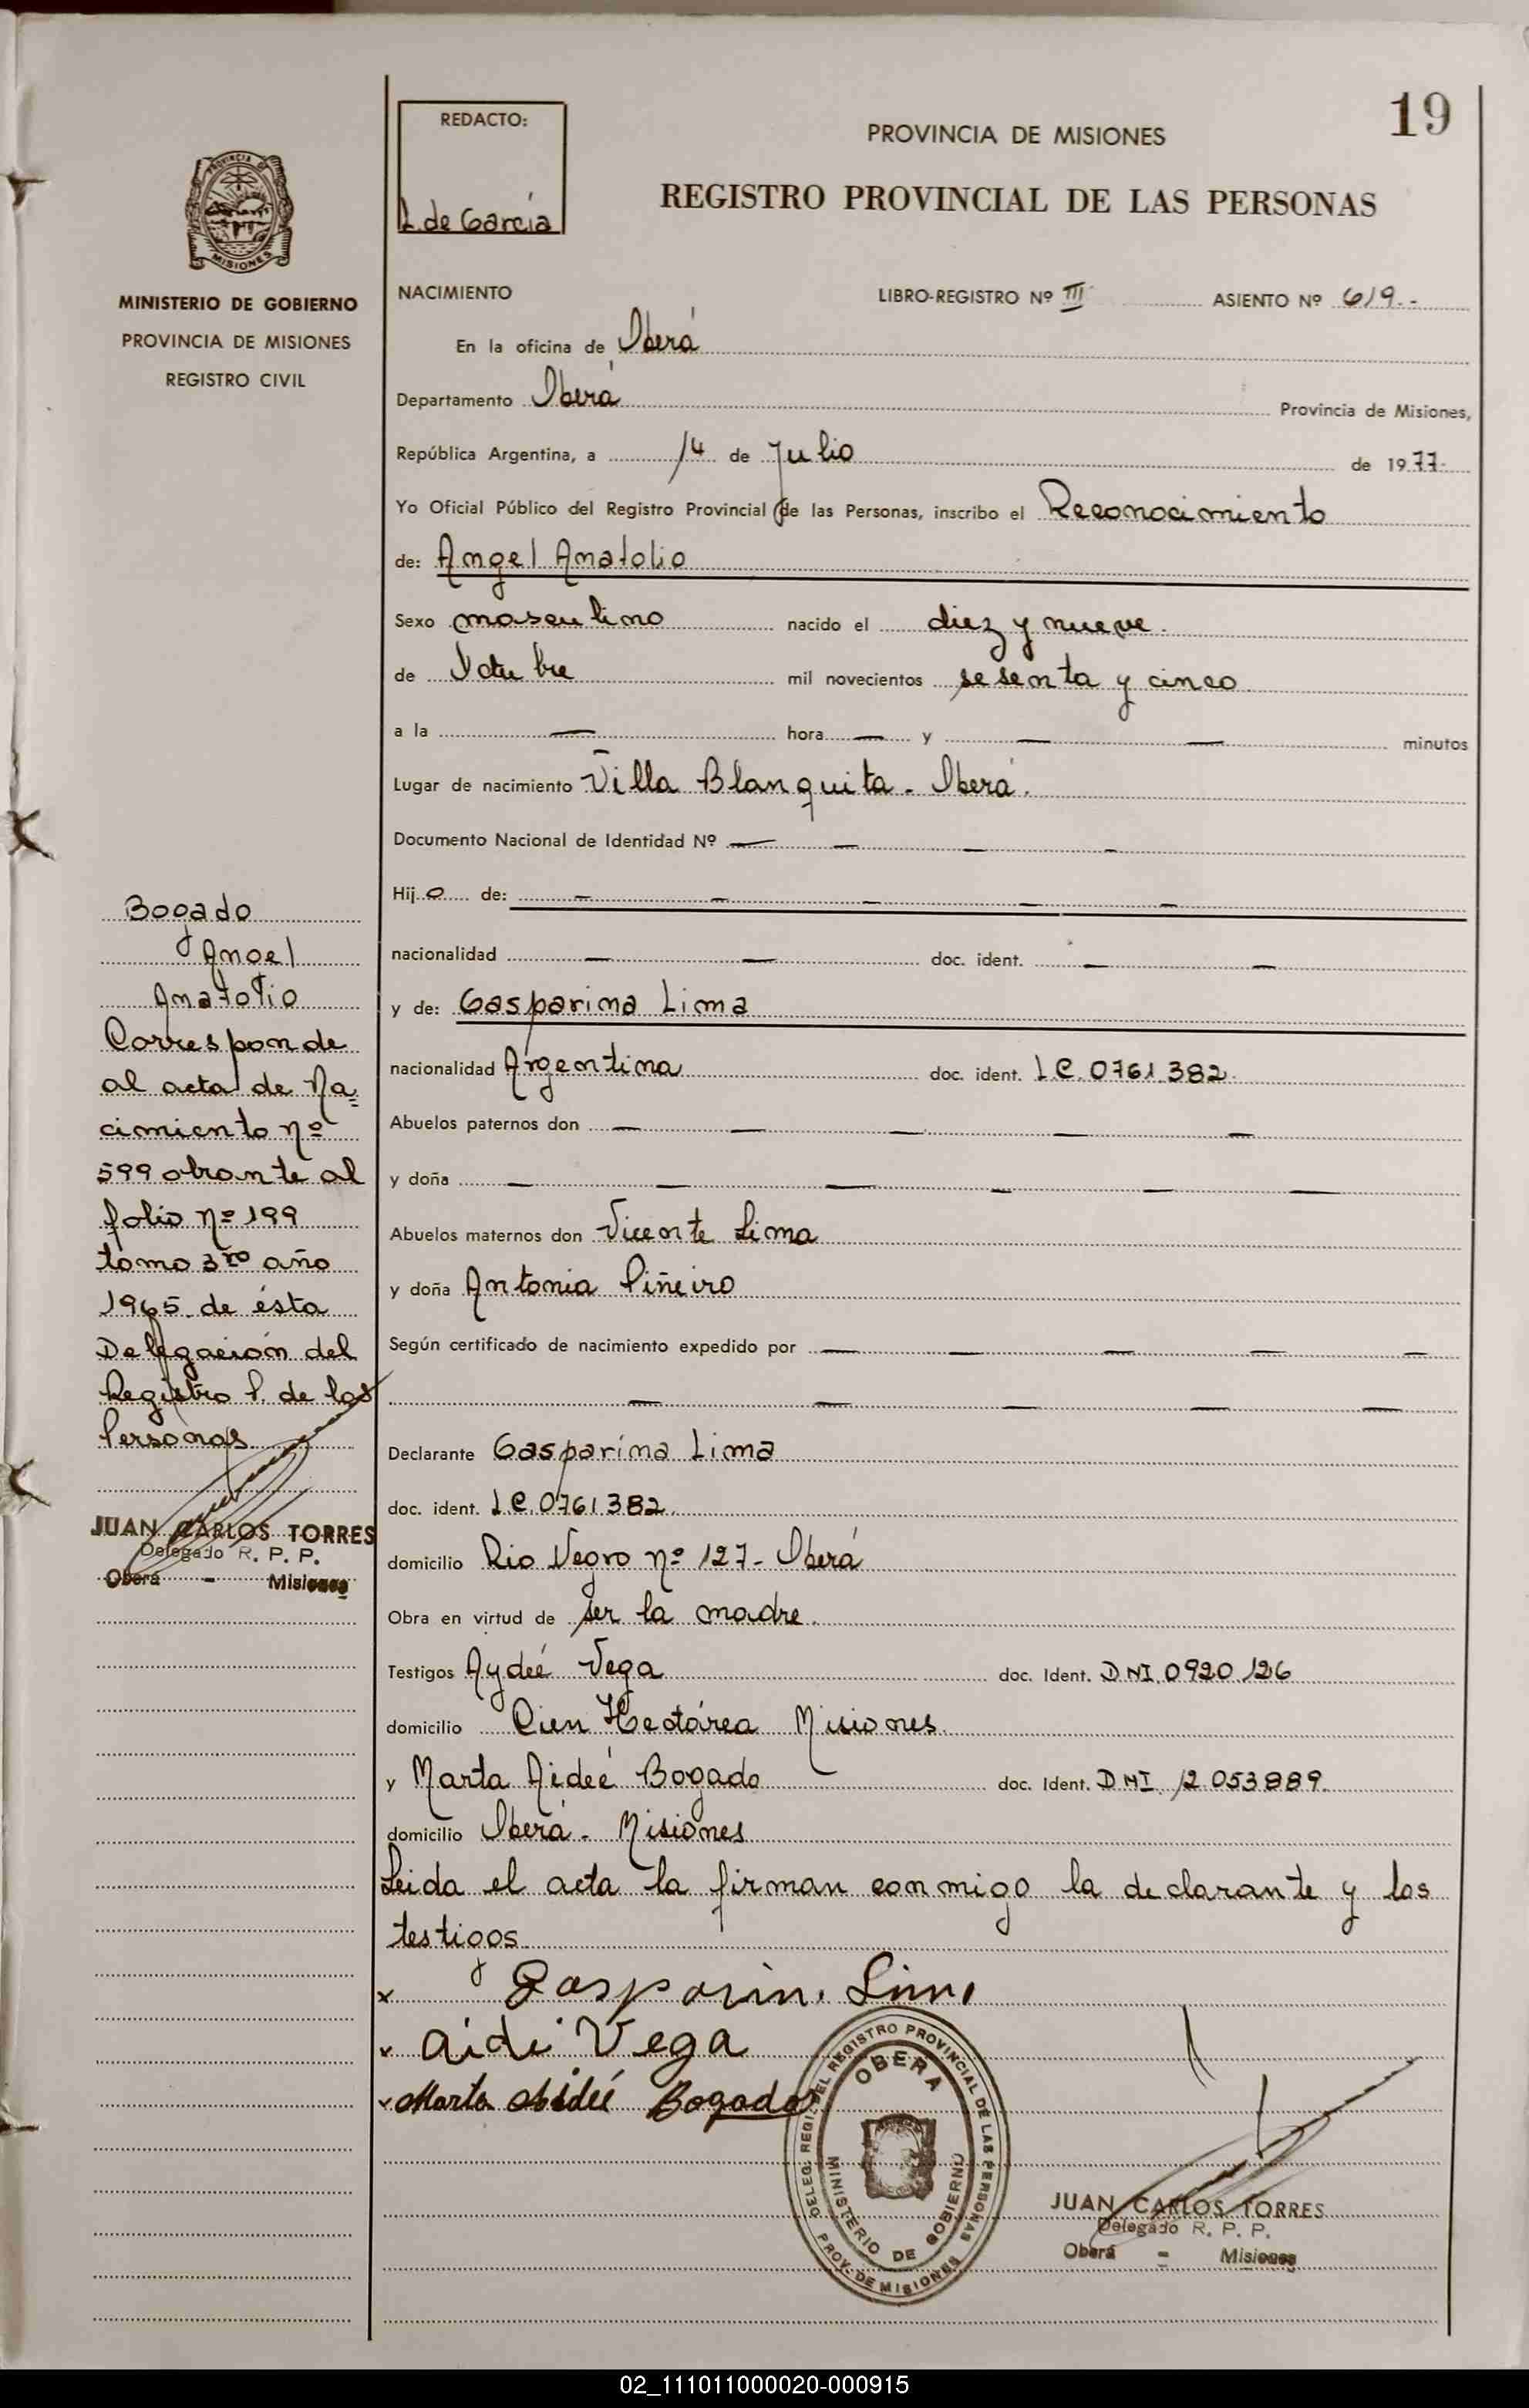 19
REDACTO:
L. de García
PROVINCIA DE MISIONES
REGISTRO PROVINCIAL DE LAS PERSONAS
PROVINCIA DE
MISIONES
MINISTERIO DE GOBIERNO
PROVINCIA DE MISIONES
REGISTRO CIVIL
NACIMIENTO LIBRO-REGISTRO Nº III ASIENTO Nº 619.-
En la oficina de Oberá
Departamento Oberá Provincia de Misiones,
República Argentina, a 14 de Julio de 1977.
Yo Oficial Público del Registro Provincial de las Personas, inscribo el Reconocimiento
de: Angel Anatolio
Sexo masculino nacido el diez y nueve.
de Octubre mil novecientos sesenta y cinco
a la — hora — y — — minutos
Lugar de nacimiento Villa Blanquita - Oberá.
Documento Nacional de Identidad Nº — — — —
Hijo de: — — — — —
nacionalidad — — doc. ident. — —
y de: Gasparina Lima
nacionalidad Argentina doc. ident. L.C. 0761.382.
Abuelos paternos don — — — — —
y doña — — — — — —
Abuelos maternos don Vicente Lima
y doña Antonia Piñeiro
Según certificado de nacimiento expedido por — — — — —
— — — — —
Declarante Gasparina Lima
doc. ident. L.C. 0761.382.
domicilio Rio Negro nº 127- Oberá
Obra en virtud de ser la madre.
Testigos Aydeé Vega doc. Ident. D.NI. 0920.126
domicilio Cien Hectárea Misiones.
y Marta Aideé Bogado doc. Ident. DNI. 12.053.889.
domicilio Oberá - Misiones
Leida el acta la firman conmigo la declarante y los
testigos.
x Gasparin. Lima
x Aide Vega
x Marta Aideé Bogado
Bogado
Angel
Anatolio
Corresponde
al acta de Na=
cimiento nº
599 obrante al
folio nº 199
tomo 3ro año
1965 de ésta
Delegación del
Registro P. de las
Personas
JUAN CARLOS TORRES
Delegado R. P. P.
Oberá - Misiones
DELEG. REGI. DEL REGISTRO PROVINCIAL DE LAS PERSONAS
OBERA
MINISTERIO DE GOBIERNO
PROV. DE MISIONES
JUAN CARLOS TORRES
Delegado R. P. P.
Oberá - Misiones
02_111011000020-000915